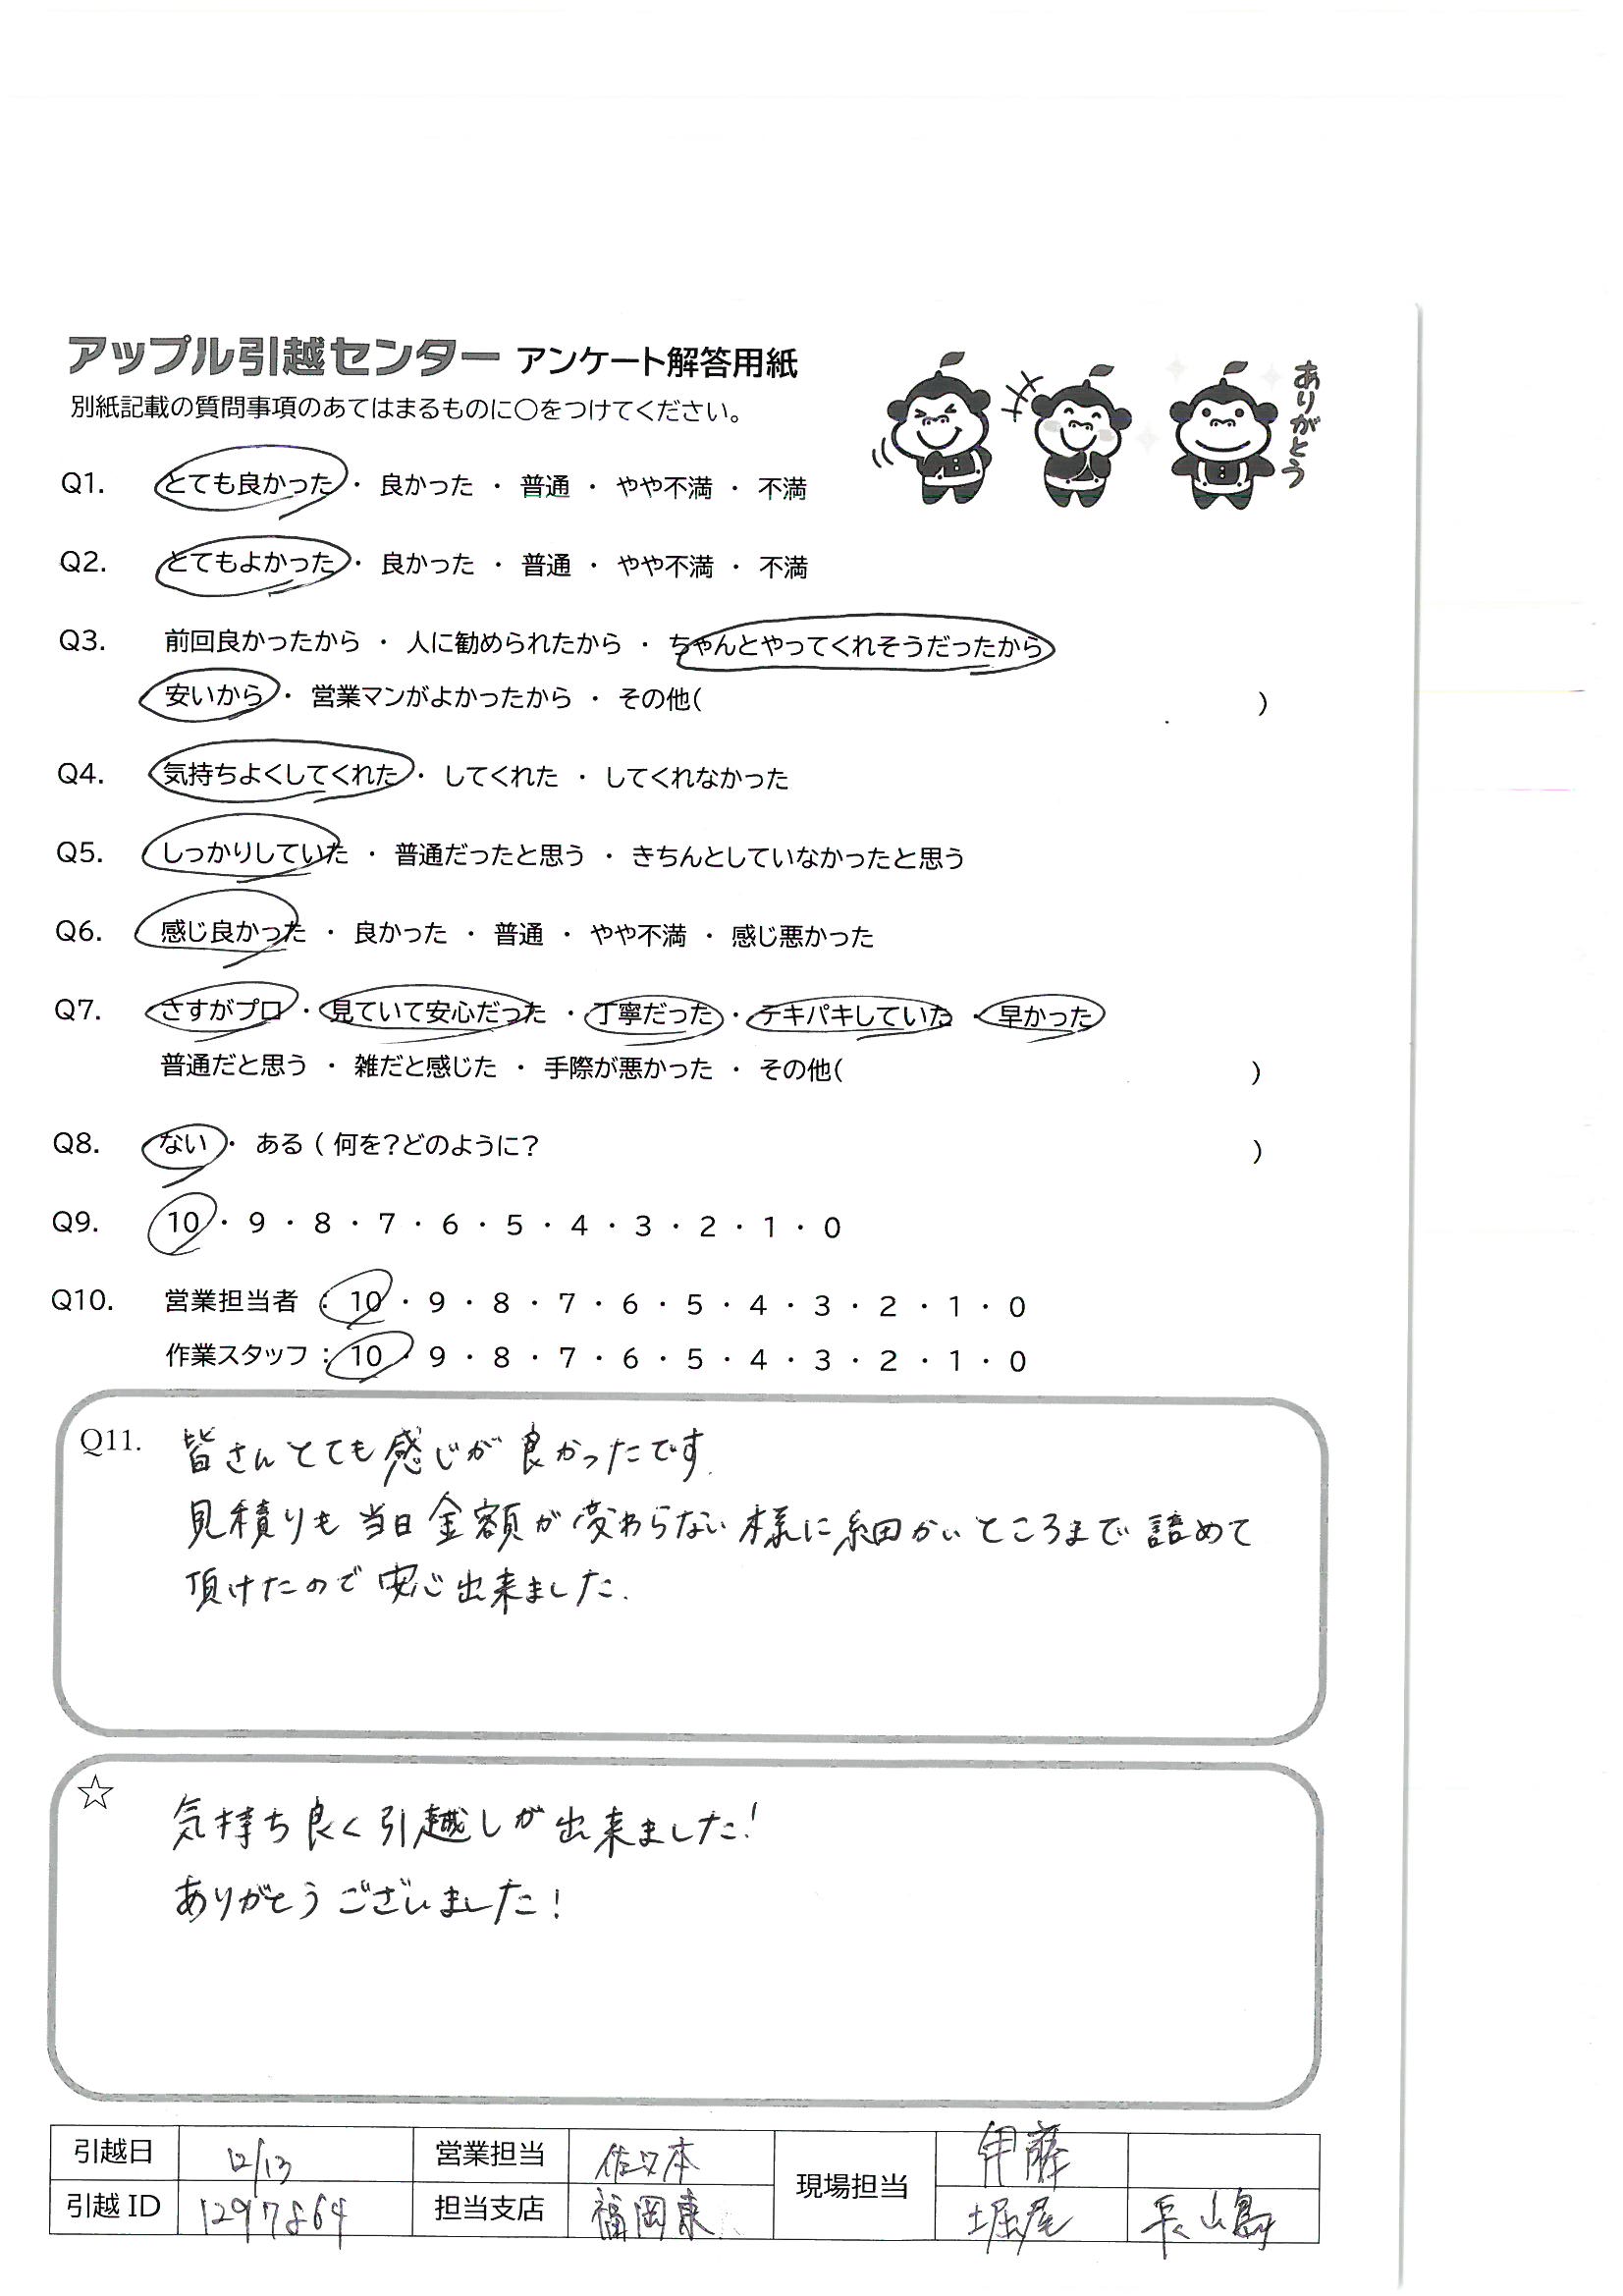 アップル引越センター アンケート解答用紙
ありがとう
別紙記載の質問事項のあてはまるものに○をつけてください。
Q1. とても良かった ・ 良かった ・ 普通 ・ やや不満 ・ 不満
Q2. とてもよかった ・ 良かった ・ 普通 ・ やや不満 ・ 不満
Q3. 前回良かったから ・ 人に勧められたから ・ ちゃんとやってくれそうだったから
安いから ・ 営業マンがよかったから ・ その他( )
Q4. 気持ちよくしてくれた ・ してくれた ・ してくれなかった
Q5. しっかりしていた ・ 普通だったと思う ・ きちんとしていなかったと思う
Q6. 感じ良かった ・ 良かった ・ 普通 ・ やや不満 ・ 感じ悪かった
Q7. さすがプロ ・ 見ていて安心だった ・ 丁寧だった ・ テキパキしていた ・ 早かった
普通だと思う ・ 雑だと感じた ・ 手際が悪かった ・ その他( )
Q8. ない ・ ある ( 何を?どのように? )
Q9. 10 ・ 9 ・ 8 ・ 7 ・ 6 ・ 5 ・ 4 ・ 3 ・ 2 ・ 1 ・ 0
Q10. 営業担当者 : 10 ・ 9 ・ 8 ・ 7 ・ 6 ・ 5 ・ 4 ・ 3 ・ 2 ・ 1 ・ 0
作業スタッフ : 10 ・ 9 ・ 8 ・ 7 ・ 6 ・ 5 ・ 4 ・ 3 ・ 2 ・ 1 ・ 0
Q11. 皆さんとても感じが良かったです.
見積りも当日金額が変わらない様に細かいところまで詰めて
頂けたので安心出来ました.
☆ 気持ち良く引越しが出来ました!
ありがとうございました!
引越日 12/13 営業担当 佐々本 現場担当 伊藤
引越 ID 1297864 担当支店 福岡東 堀尾 長山島